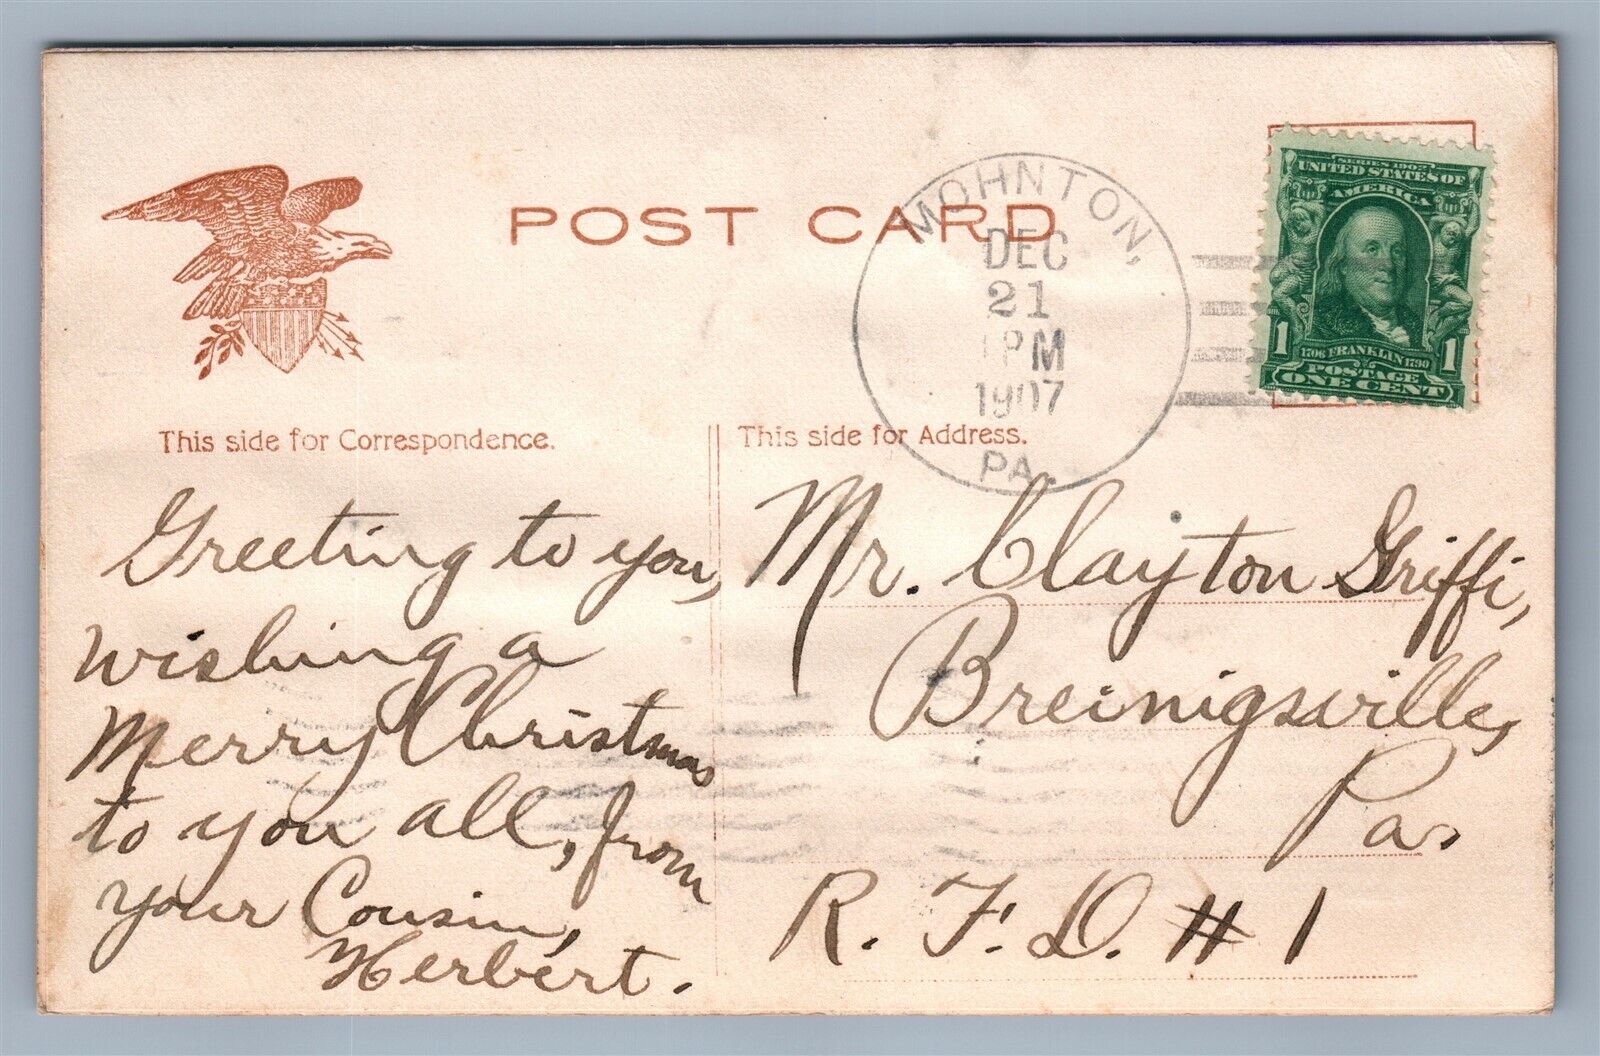 POST CARD
MOHNTON,
DEC
21
1 PM
1907
PA.
SERIES 1902
UNITED STATES OF
AMERICA
1 1
1706 FRANKLIN 1790
POSTAGE
ONE CENT
This side for Correspondence.
This side for Address.
Greeting to you,
wishing a
Merry Christmas
to you all, from
your Cousin,
Herbert.
Mr. Clayton Griffi,
Breinigsville,
Pa.
R. F. D. # 1